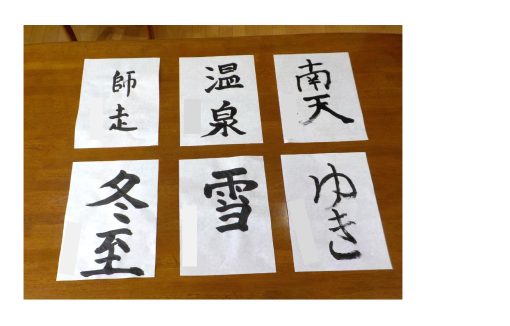 師走
温泉
南天
冬至
雪
ゆき